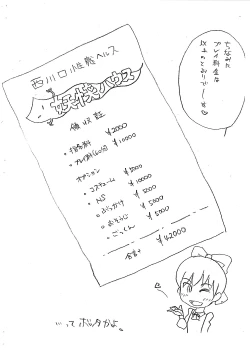 ちなみに
プレイ料金は
以上のとおりでーす
西川口性感ヘルス
妖怪ハウス
領収証
・指名料 ¥2000
・プレイ料(60分) ¥10000
オプション
・コスチューム ¥5000
・NS ¥10000
・ぶっかけ ¥5000
・おそうじ ¥5000
・ごっくん ¥5000
合計 ¥42000
…ってボッタかよ。